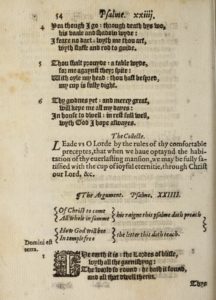 54 Psalme. xxiiij.
4 You though I go: through death bys wo,
his vaale and shadow wyde:
I feare no hurt: wyth me thou art,
wyth staffe and rod to guide.
5 Thou shalt procyde: a table wyde,
for me agaynst they: spite:
With oyle my head: thou hast bespred,
my cup is fully dight.
6 Thy goodnes yet: and mercy great,
will kepe me all my dayes:
In house to dwell: in rest full well,
wyth God I hope alwayes.
The Collecte.
Leade vs O Lorde by the rules of thy comfortable
preceptes, that when we haue optaynd the habi-
tation of thy euerlasting mansion, we may be fully sa-
tissed with the cup of ioyful eternitie, through Christ
our Lord, &c.
The Argument. Psalme. XXIIII.
Of Christ to come
All whole in summe
his raigne this psalme doth preach
How God will bee
In temples free
the letter this doth teach.
Domini est
terra.
The earth it is: the Lordes of blisse,
wyth all the garnishing:
The world so round: he hath it found,
and all that dwell therin.
Thys